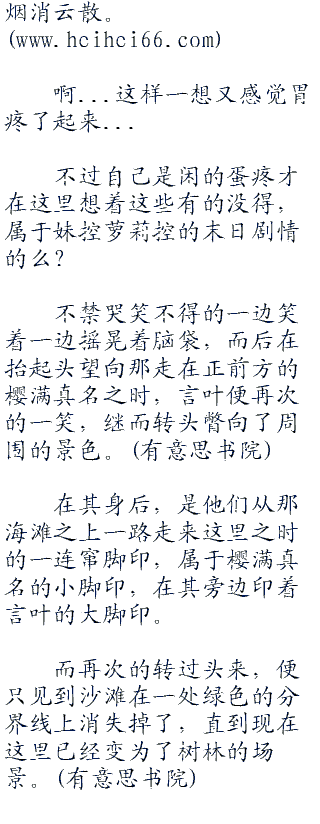 烟消云散。
(www.hcihci66.com)
啊...这样一想又感觉胃
疼了起来...
不过自己是闲的蛋疼才
在这里想着这些有的没得，
属于妹控萝莉控的末日剧情
的么？
不禁哭笑不得的一边笑
着一边摇晃着脑袋，而后在
抬起头望向那走在正前方的
樱满真名之时，言叶便再次
的一笑，继而转头瞥向了周
围的景色。(有意思书院)
在其身后，是他们从那
海滩之上一路走来这里之时
的一连窜脚印，属于樱满真
名的小脚印，在其旁边印着
言叶的大脚印。
而再次的转过头来，便
只见到沙滩在一处绿色的分
界线上消失掉了，直到现在
这里已经变为了树林的场
景。(有意思书院)